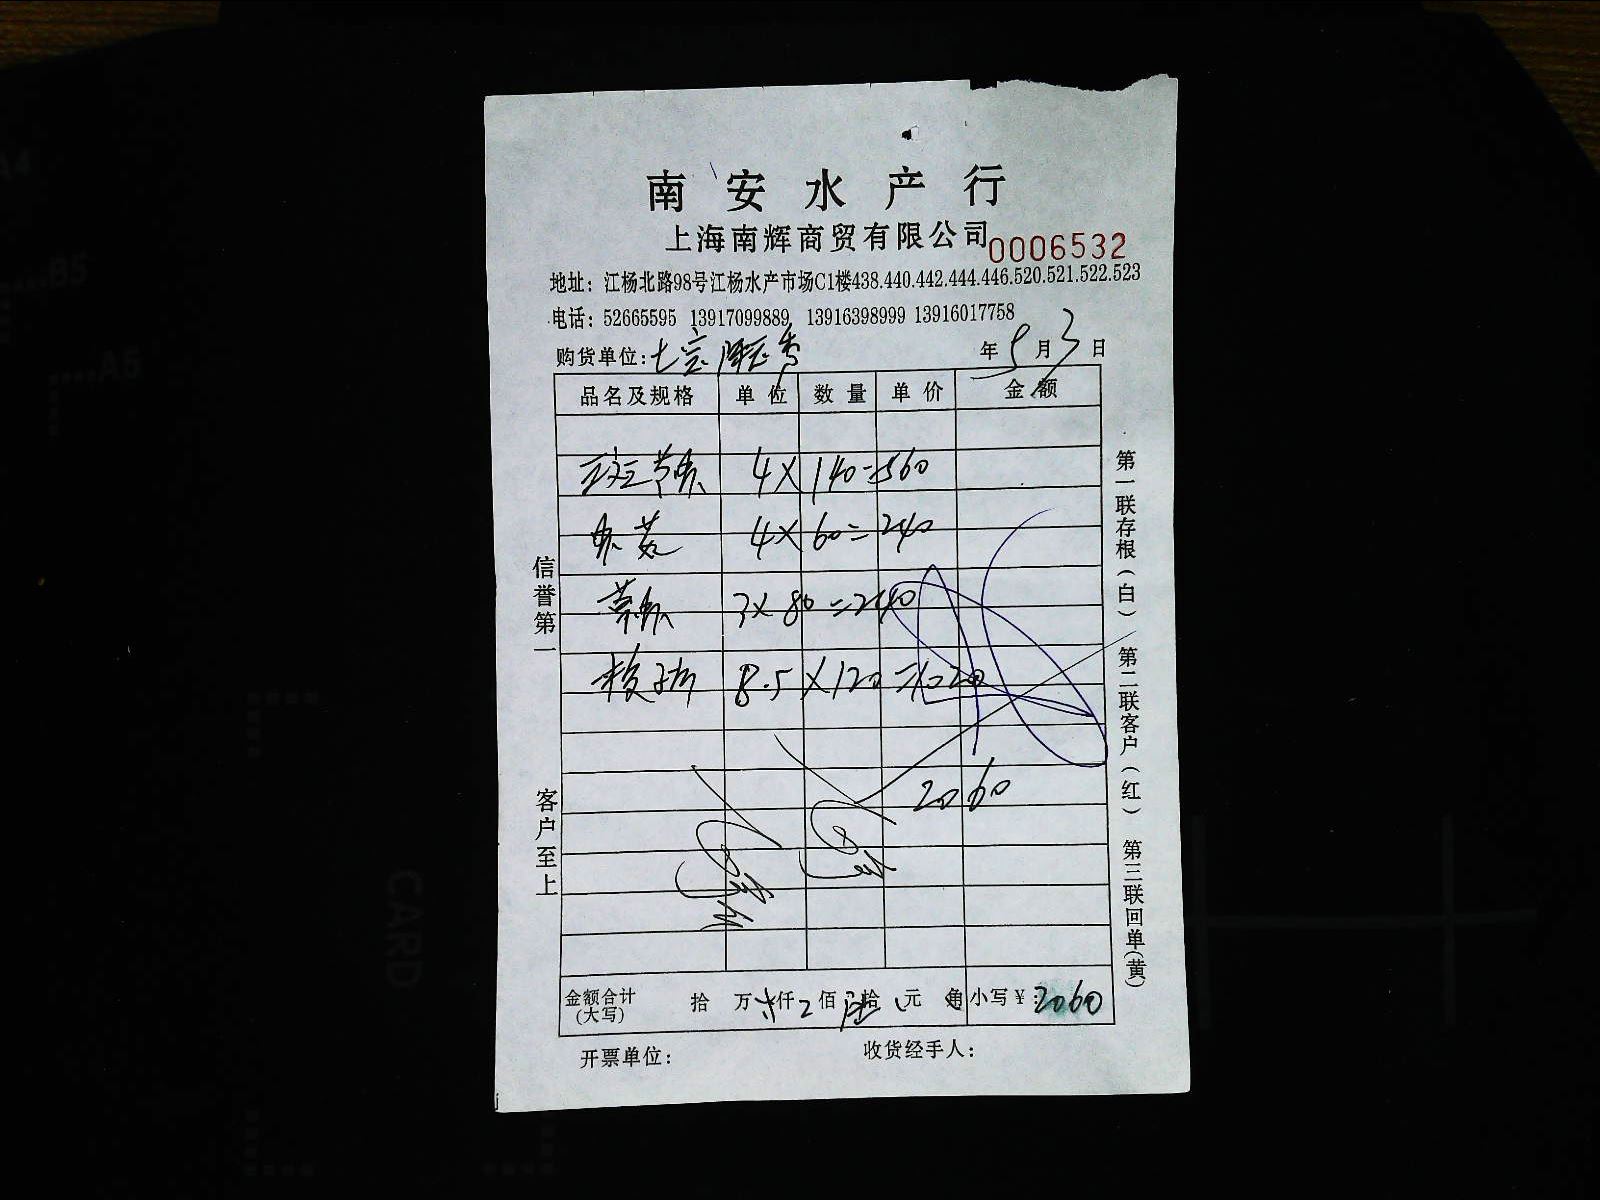 南安水产行
上海南辉商贸有限公司 0006532
地址：江杨北路98号江杨水产市场C1楼438.440.442.444.446.520.521.522.523
电话：52665595 13917099889 13916398999 13916017758
购货单位： 年 5月3日
品名及规格 单位 数量 单价 金额
斑节虾 4×140=560
4×60=240
草虾 3×80=240
8.5×120=1020
2060
金额合计(大写) 拾 万 仟 佰 拾 元 角 小写¥：2060
开票单位： 收货经手人：
信誉第一
客户至上
第一联存根(白) 第二联客户(红) 第三联回单(黄)
CARD
A4
B5
A5